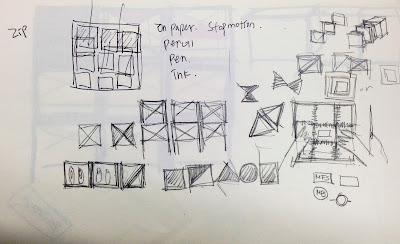 ZIP
on paper. Stopmotion.
pencil
pen
ink.
MB
MB